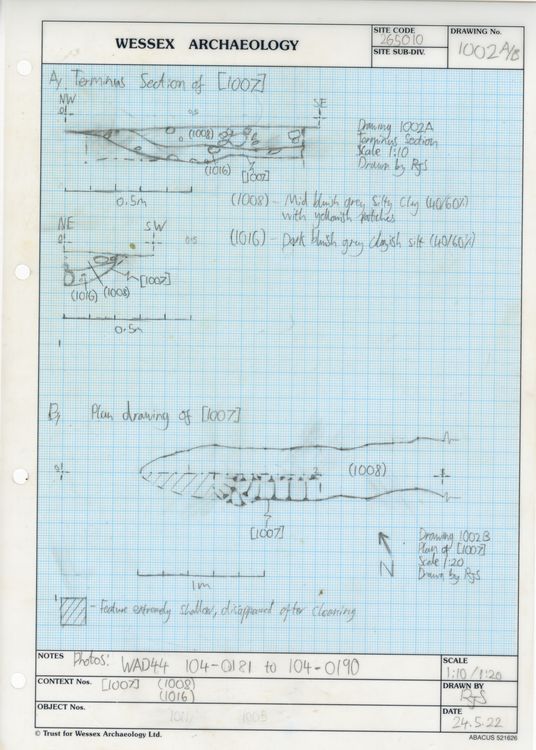 WESSEX ARCHAEOLOGY
SITE CODE
265010
SITE SUB-DIV.
DRAWING No.
1002 A/B
A) Terminus Section of [1007]
NW
SE
0/5
(1008)
(1016)
[1007]
0.5m
Drawing 1002A
Terminus Section
Scale 1:10
Drawn by RJS
(1008) - Mid bluish grey Silty Clay (40/60%)
with yellowish patches
(1016) - Dark bluish grey clayish silt (40/60%)
NE
SW
0/5
[1007]
(1016) (1008)
0.5m
B) Plan drawing of [1007]
(1008)
[1007]
1m
N
Drawing 1002B
Plan of [1007]
Scale 1:20
Drawn by RJS
- Feature extremely shallow, disappeared after cleaning
NOTES Photos: WAD44 104-0181 to 104-0190
CONTEXT Nos. [1007] (1008)
(1016)
OBJECT Nos.
SCALE
1:10/1:20
DRAWN BY
RJS
DATE
24.5.22
© Trust for Wessex Archaeology Ltd.
ABACUS 521626